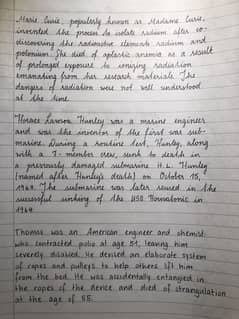 Marie Curie, popularly known as Madame Curie,
invented the process to isolate radium after co-
discovering the radioactive elements radium and
polonium. She died of aplastic anemia as a result
of prolonged exposure to ionizing radiation
emanating from her research materials. The
dangers of radiation were not well understood
at the time.
Horace Lawson Hunley was a marine engineer
and was the inventor of the first war sub-
marine. During a routine test, Hunley, along
with a 7-member crew, sunk to death in
a previously damaged submarine H. L. Hunley
(named after Hunley's death) on October 15,
The submarine was later reused in the
successful sinking of the USS Housatonic in
Thomas was an American engineer and chemist
who contracted polio at age 51, leaving him
severely disabled. He devised an elaborate system
of ropes and pulleys to help others lift him
from the bed. He was accidentally entangled in
the ropes of the device and died of strangulation
at the age of 55.